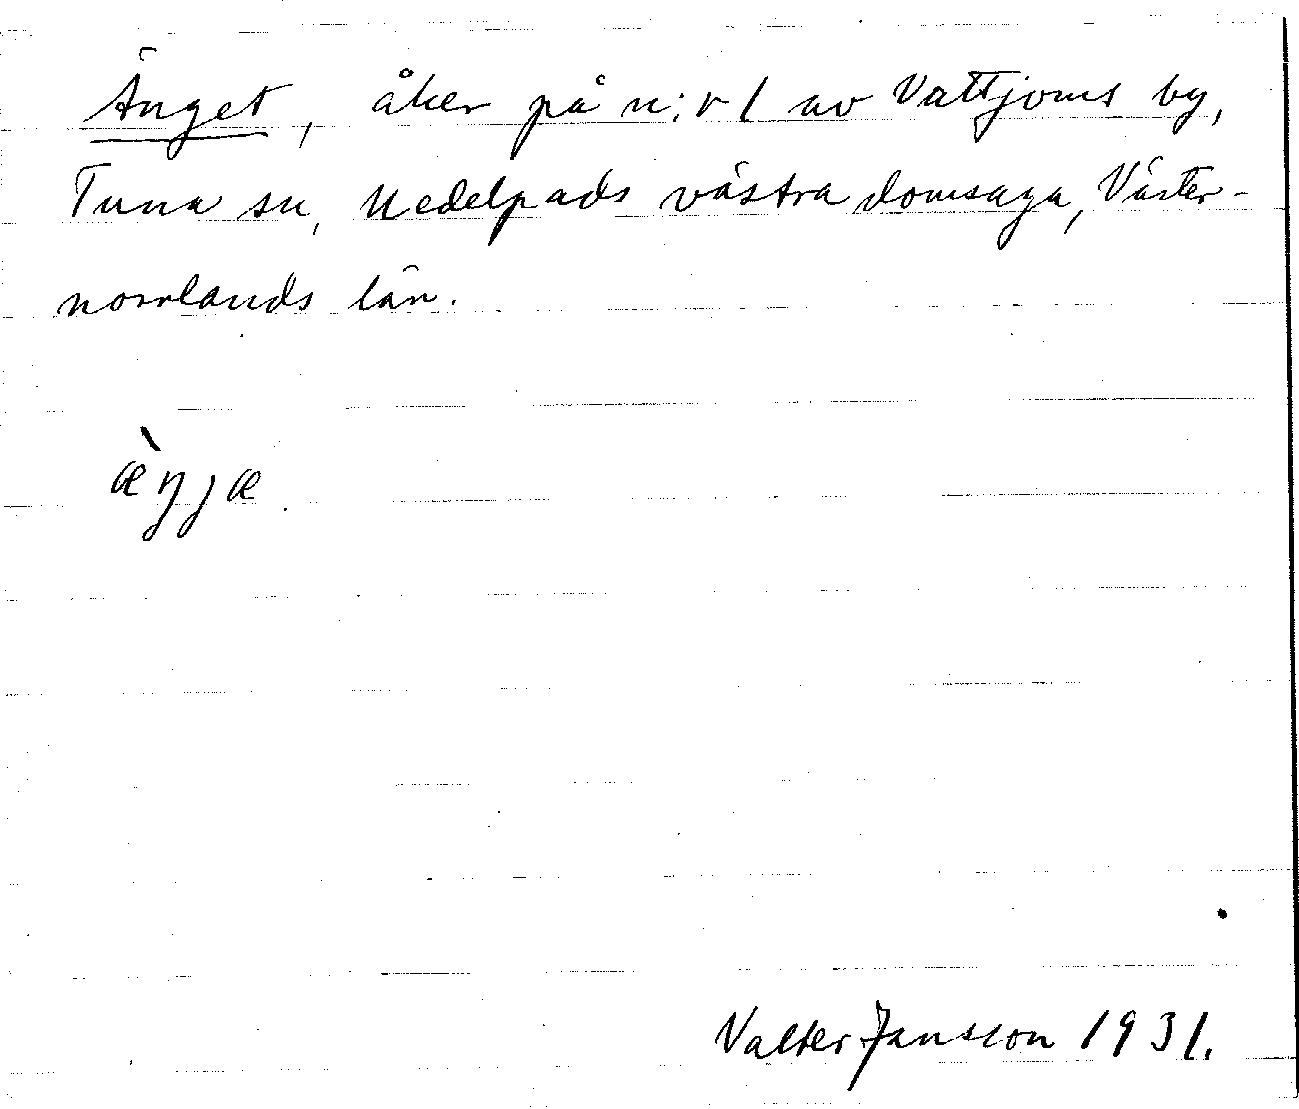 Änget, åker på n:r 1 av Vattjoms by,
Tuna sn, Medelpads västra domsaga, Väster-
norrlands län.
æ̀ŋjæ.
Valter Jansson 1931.